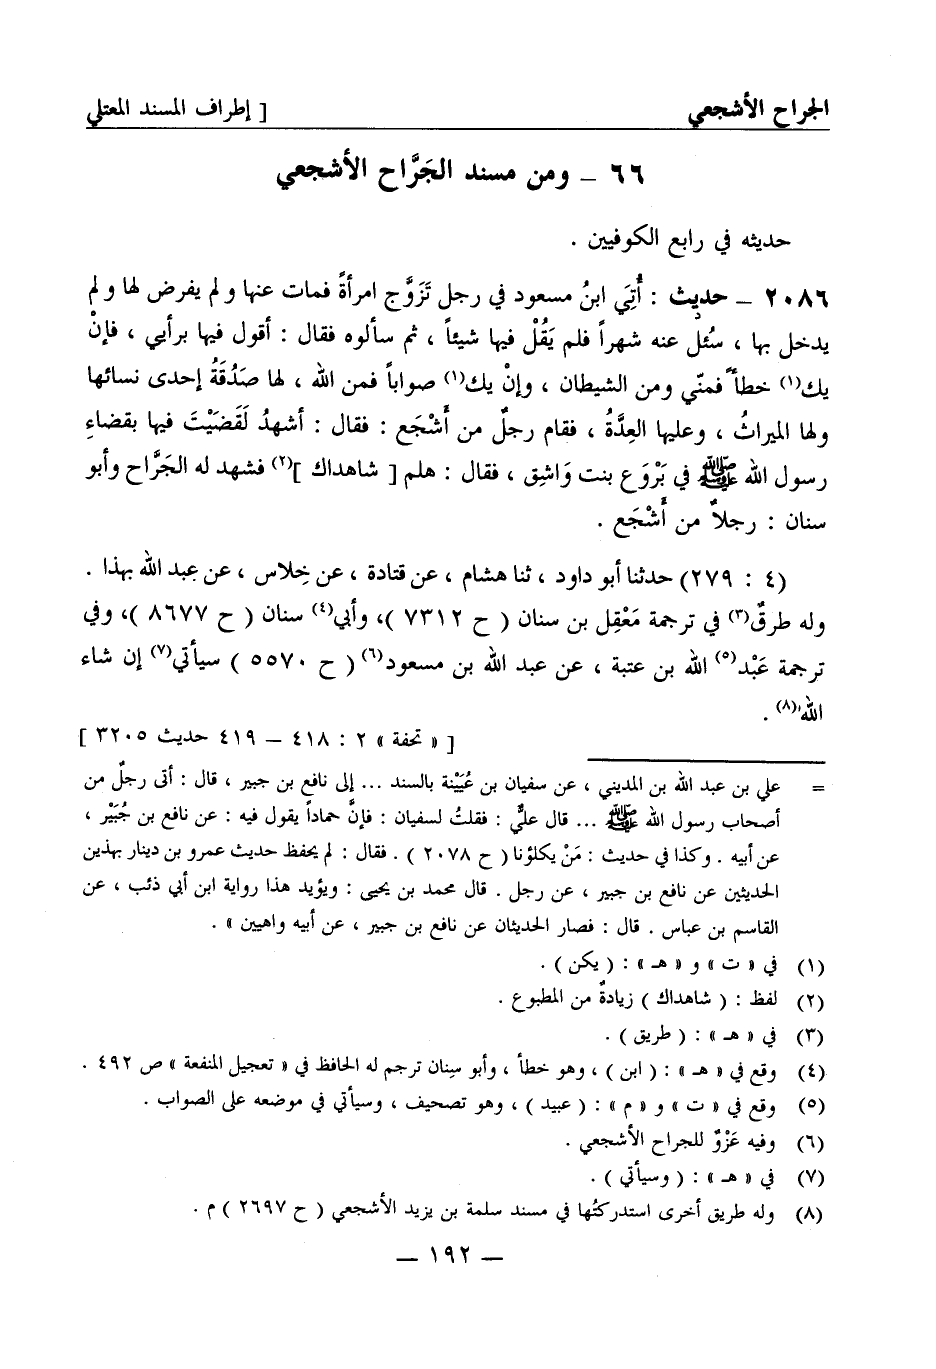 الجراح الأشجعي [ إطراف المسند المعتلي
٦٦ ــ ومن مسند الجَرَّاح الأشجعي
حديثه في رابع الكوفيين .
٢٠٨٦ ــ حديث : أُتِيَ ابنُ مسعود في رجل تَزَوَّج امرأةً فمات عنها ولم يفرض لها ولم
يدخل بها ، سُئل عنه شهراً فلم يَقُلْ فيها شيئاً ، ثم سألوه فقال : أقول فيها برأيي ، فإنْ
يك(١) خطأً فمنّي ومن الشيطان ، وإنْ يك(١) صواباً فمن الله ، لها صَدُقَةُ إحدى نسائها
ولها الميراثُ ، وعليها العِدَّةُ ، فقام رجلٌ من أَشْجَع : فقال : أشهدُ لَقَضَيْتَ فيها بقضاءِ
رسول الله ﷺ في بَرْوَع بنت وَاشِق ، فقال : هلم [ شاهداك ](٢) فشهد له الجَرَّاح وأبو
سنان : رجلاً من أَشْجَع .
(٤ : ٢٧٩) حدثنا أبو داود ، ثنا هشام ، عن قتادة ، عن خِلاس ، عن عبد الله بهذا .
وله طرقٌ(٣) في ترجمة مَعْقِل بن سنان ( ح ٧٣١٢ )، وأبي(٤) سنان ( ح ٨٦٧٧ )، وفي
ترجمة عَبْد(٥) الله بن عتبة ، عن عبد الله بن مسعود(٦) ( ح ٥٥٧٠ ) سيأتي(٧) إن شاء
الله(٨) .
[ « تحفة » ٢ : ٤١٨ ــ ٤١٩ حديث ٣٢٠٥ ]
= علي بن عبد الله بن المديني ، عن سفيان بن عُيَيْنة بالسند ... إلى نافع بن جبير ، قال : أتى رجلٌ من
أصحاب رسول الله ﷺ ... قال عليٌّ : فقلتُ لسفيان : فإنَّ حماداً يقول فيه : عن نافع بن جُبَيْر ،
عن أبيه . وكذا في حديث : مَنْ يكلؤنا ( ح ٢٠٧٨ ) . فقال : لم يحفظ حديث عمرو بن دينار بهذين
الحديثين عن نافع بن جبير ، عن رجل . قال محمد بن يحيى : ويؤيد هذا رواية ابن أبي ذئب ، عن
القاسم بن عباس . قال : فصار الحديثان عن نافع بن جبير ، عن أبيه واهيين » .
(١) في « ت » و « هـ » : ( يكن ) .
(٢) لفظ : ( شاهداك ) زيادةٌ من المطبوع .
(٣) في « هـ » : ( طريق ) .
(٤) وقع في « هـ » : ( ابن ) ، وهو خطأ ، وأبو سِنان ترجم له الحافظ في « تعجيل المنفعة » ص ٤٩٢ .
(٥) وقع في « ت » و « م » : ( عبيد ) ، وهو تصحيف ، وسيأتي في موضعه على الصواب .
(٦) وفيه عَزْوٌ للجراح الأشجعي .
(٧) في « هـ » : ( وسيأتي ) .
(٨) وله طريق أخرى استدركتُها في مسند سلمة بن يزيد الأشجعي ( ح ٢٦٩٧ ) م .
ــ ١٩٢ ــ